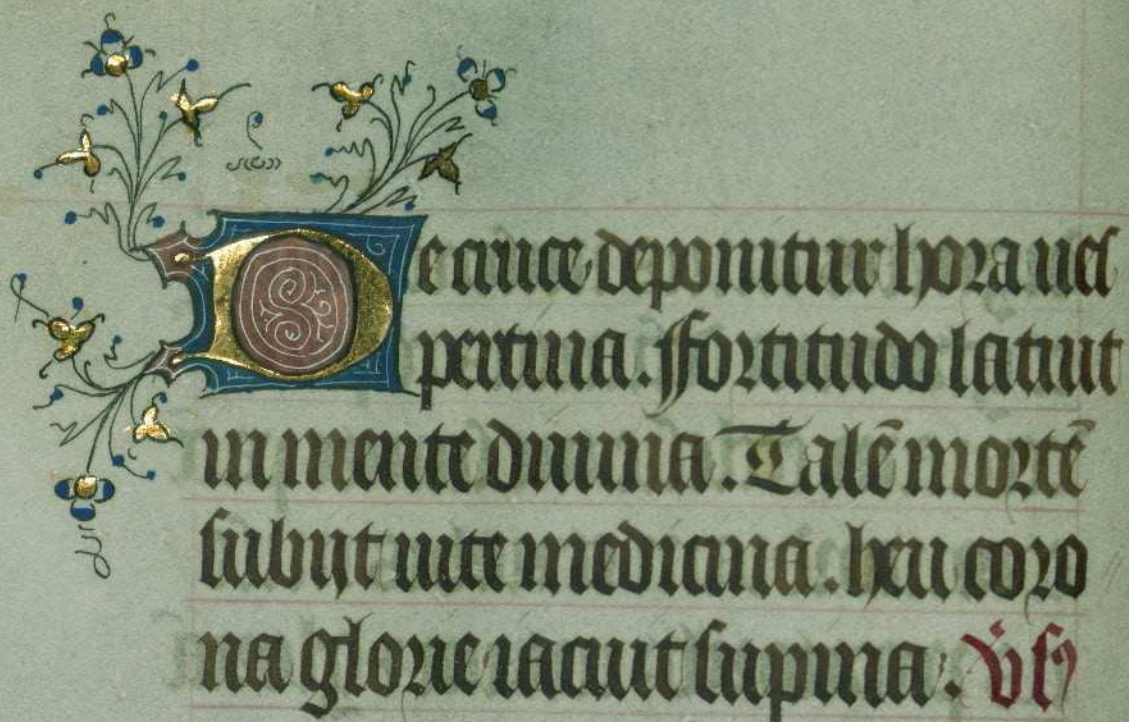 De cruce deponitur hora ues
pertina. ffortitudo latuit
in mente diuina. Talē mortē
subijt uite medicina. heu coro
na glorie iacuit supina. v̉sꝰ